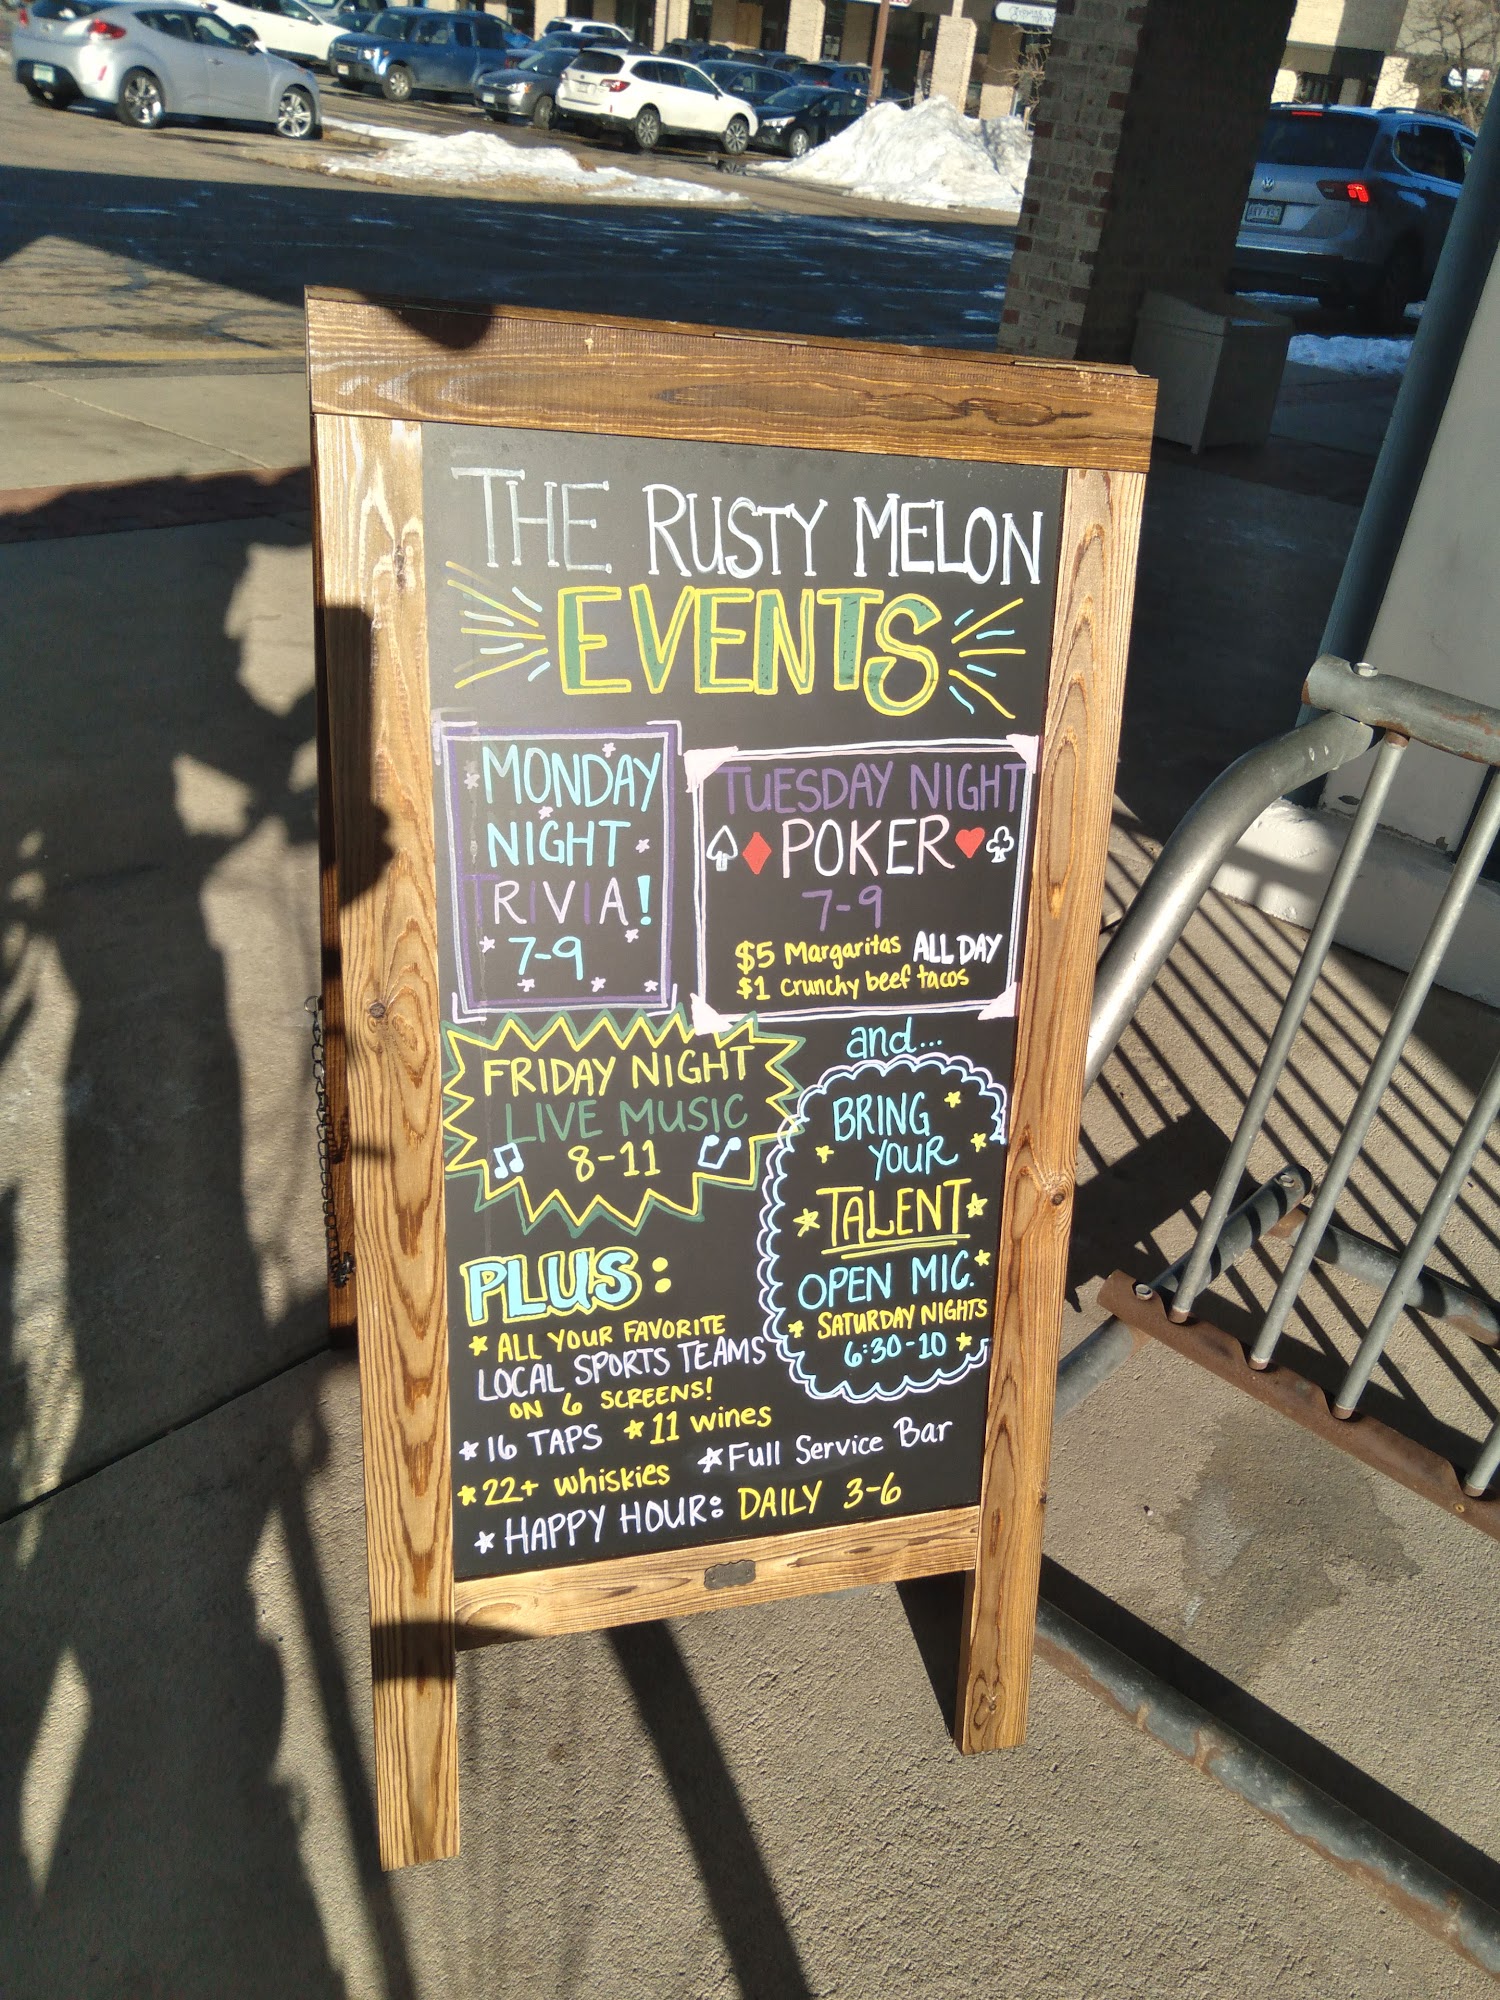 THE RUSTY MELON
EVENTS
MONDAY
NIGHT
TRIVIA!
7-9
TUESDAY NIGHT
POKER
7-9
$5 Margaritas ALL DAY
$1 crunchy beef tacos
FRIDAY NIGHT
LIVE MUSIC
8-11
and...
BRING
YOUR
TALENT
OPEN MIC.
SATURDAY NIGHTS
6:30-10
PLUS:
* ALL YOUR FAVORITE
LOCAL SPORTS TEAMS
ON 6 SCREENS!
* 16 TAPS * 11 wines
* 22+ whiskies * Full Service Bar
* HAPPY HOUR: DAILY 3-6